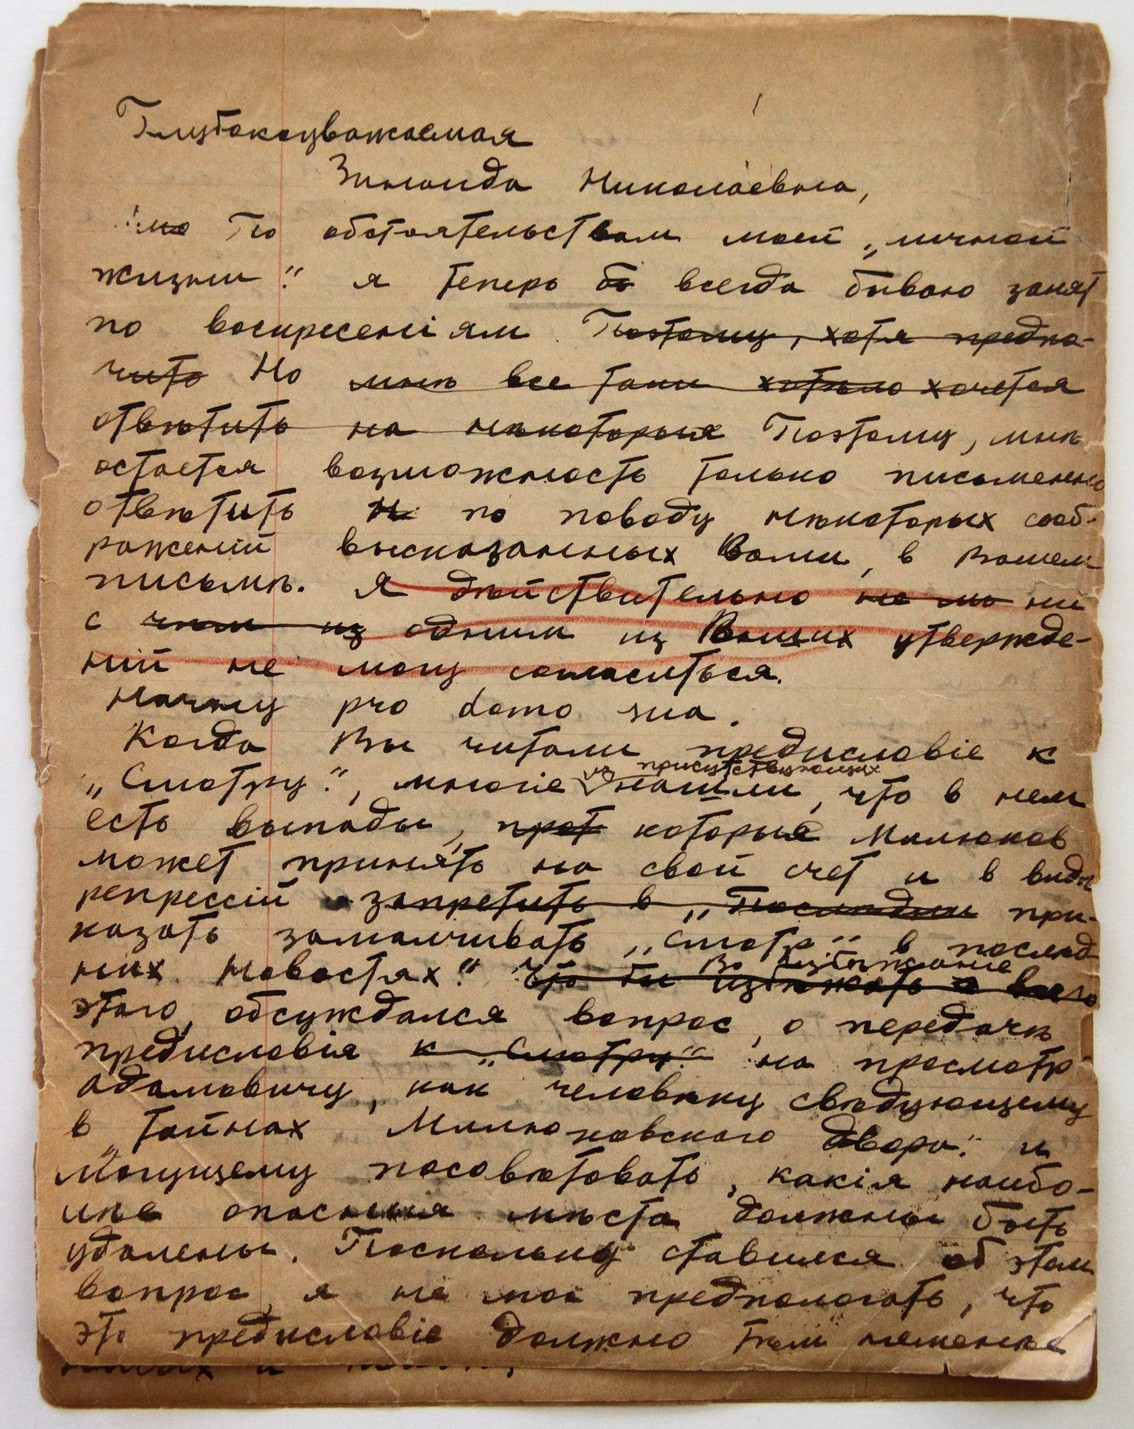 Глубокоуважаемая
Зинаида Николаевна,
По обстоятельствам моей „личной
жизни“ я теперь бо всегда бываю занят
по воскресеніям. Поэтому, хотя предпо-
чито Но мнѣ все таки хотѣло хочется
отвѣтить на нѣкоторыя Поэтому, мнѣ
остается возможность только письменно
отвѣтить Н по поводу нѣкоторых сооб-
ражений высказанных Вами, в Вашем
письмѣ. Я дѣйствительно не мо ни
с чѣм из одним из Ваших утвержде-
ній не могу согласиться.
Начну pro domo sua.
Когда Вы читали предисловіе к
„Смотру“, многіе из присутствующих нашли, что в нем
есть выпады, прот которые Милюков
может принять на свой счет и в видѣ
репрессій запретить в „Последнии при-
казать замалчивать „Смотр“ в послѣд
них Новостях“. Что бы избѣжать Во избѣжаніе всего
этого, обсуждался вопрос, о передачѣ
предисловія к „Смотру“ на просмотр
Адамовичу, как человѣку свѣдующему
в „тайнах Милюковского двора“ и
могущему посовѣтовать, какія наибо-
лѣе опасныя мѣста должны быть
удалены. Поскольку ставился об этом
вопрос я не мог предполагать, что
это предисловіе должно тѣм неменѣе